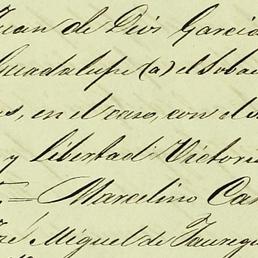 Juan de Dios Garcia
Guadalupe (a) el Soba
en el caso, con d
y Libertad: Victoria
= Marcelino Ca
José Miguel de Jauregu